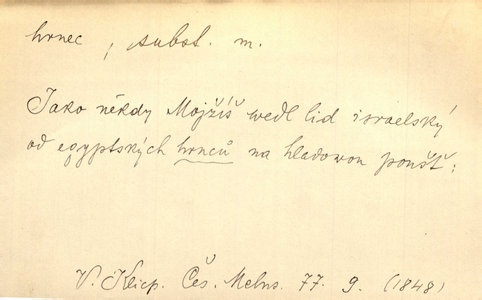 hrnec, subst. m.
Jako někdy Mojžíš wedl lid israelský
od egyptských hrnců na hladowou poušť;
V. Klicp. Čes. Melns. 77. 9. (1848)